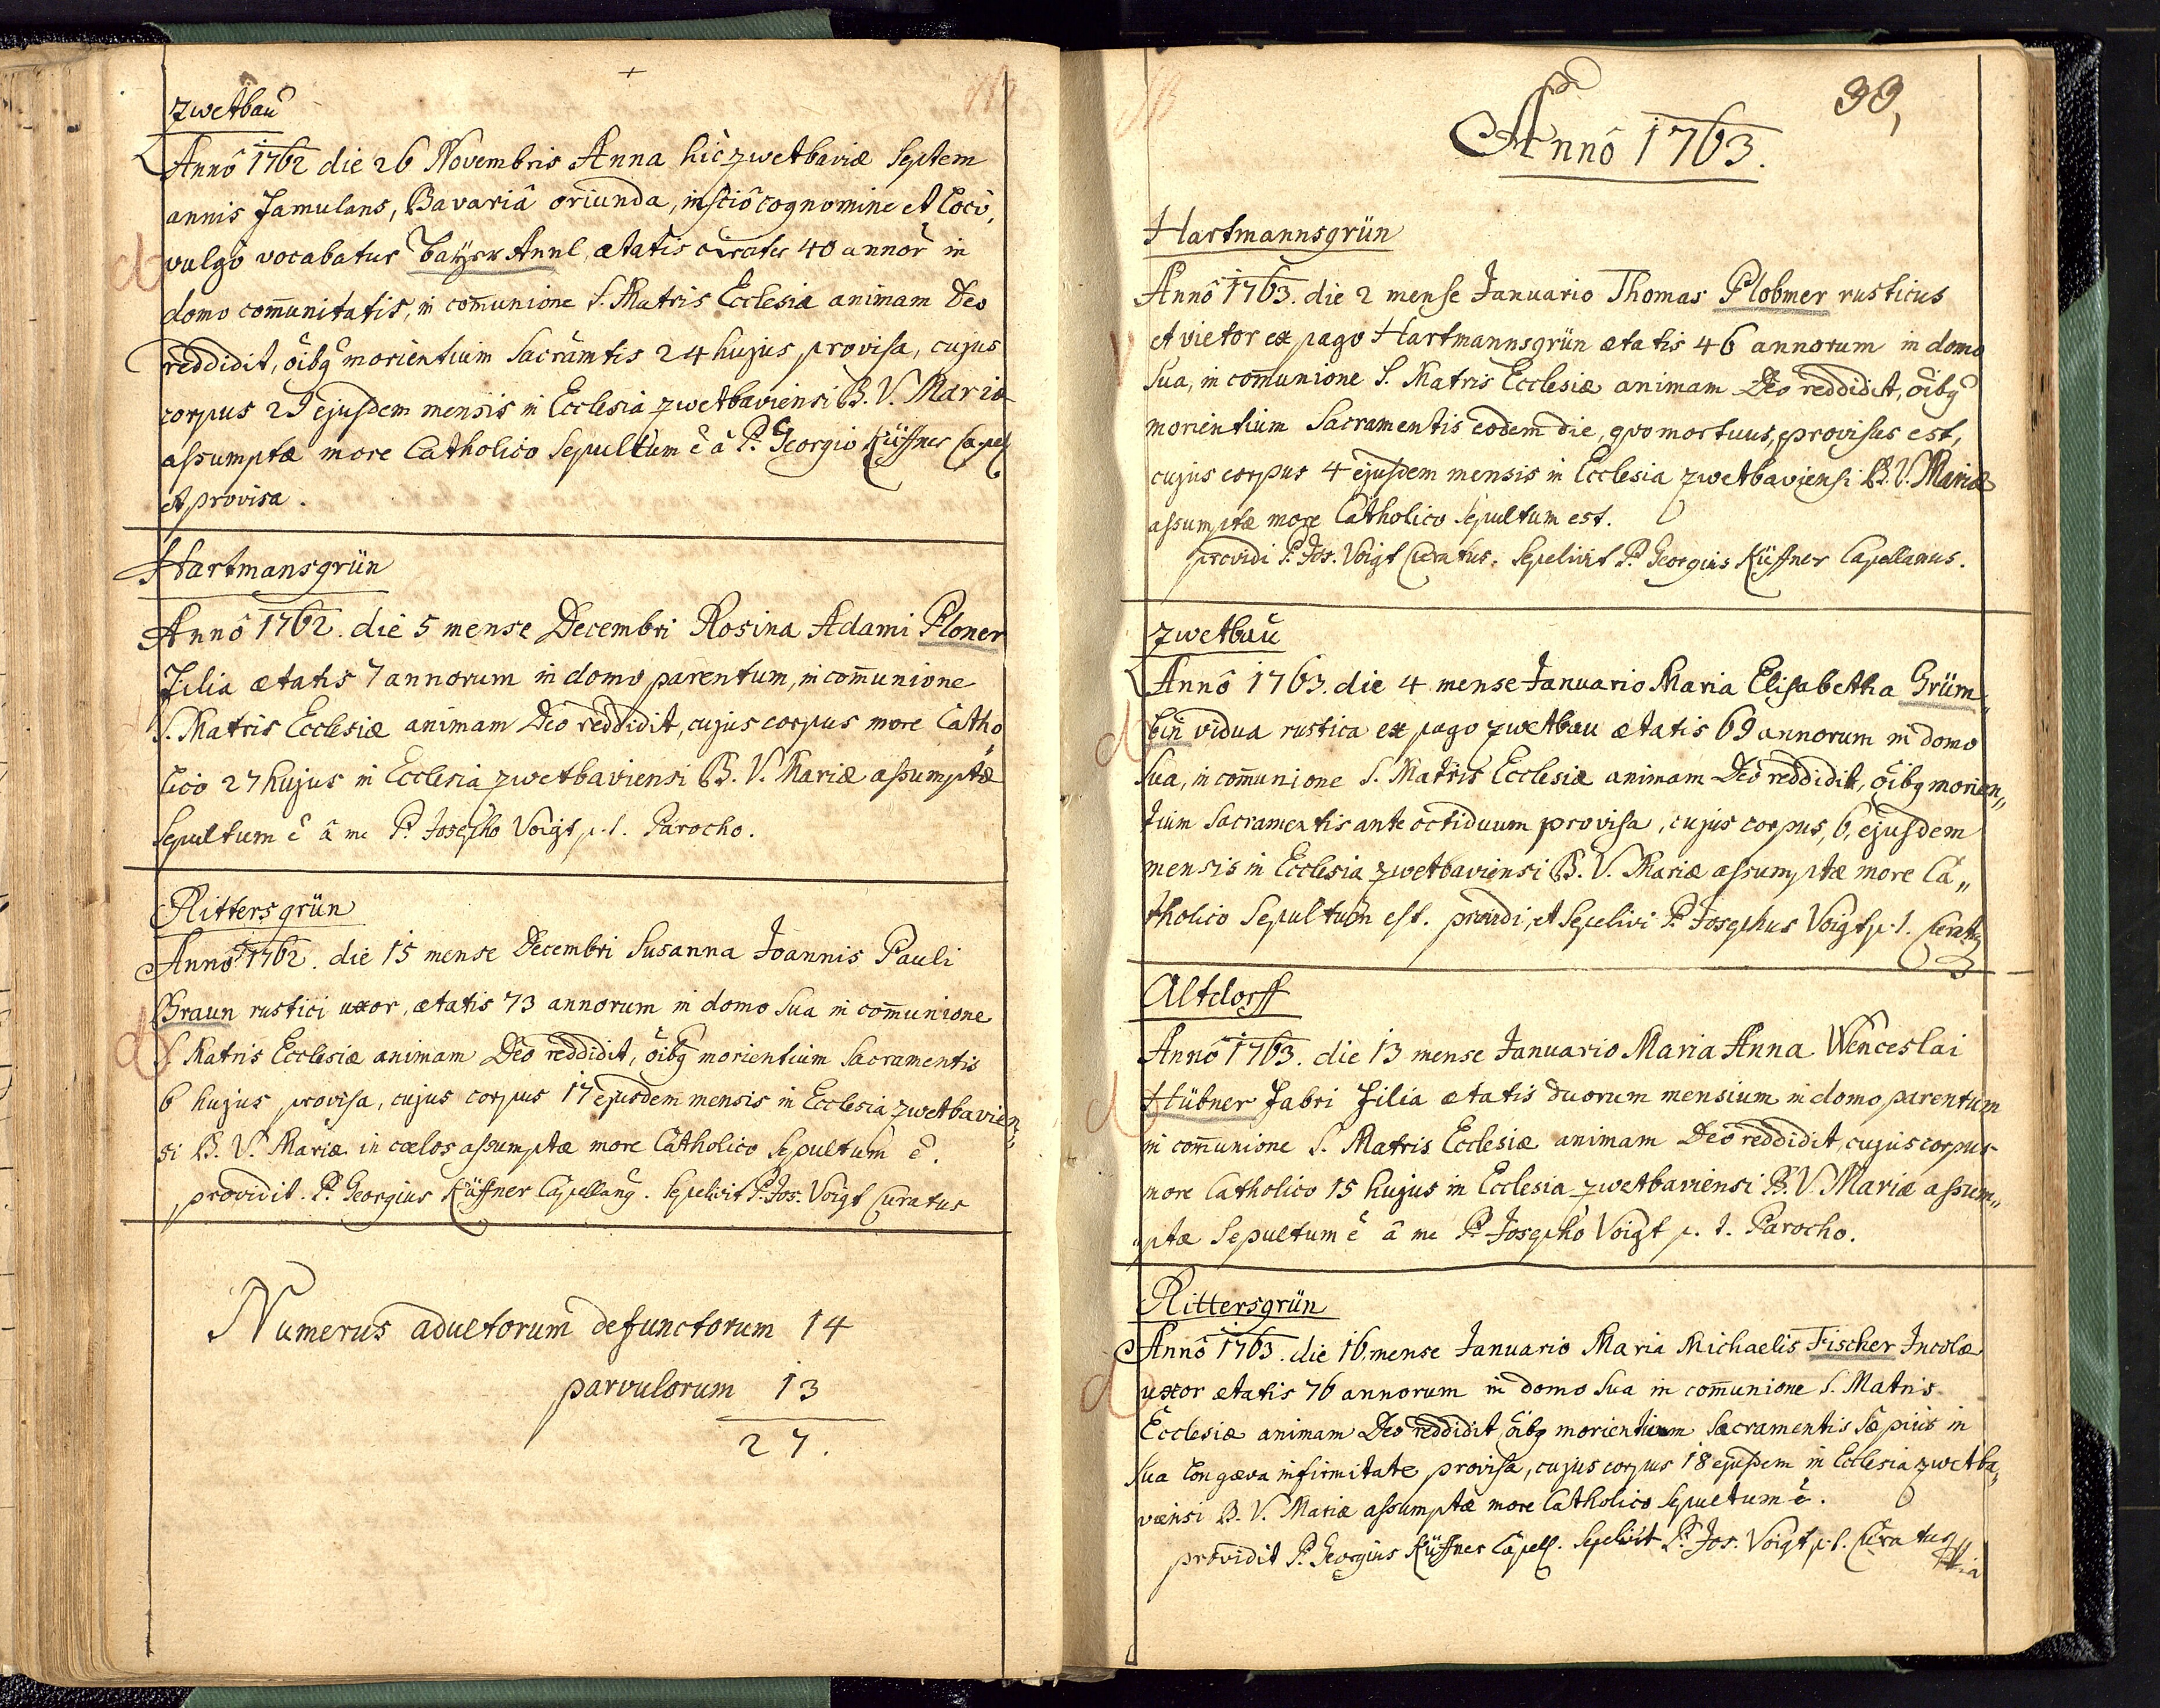 zwetbau
Annô 1762 die 26 Novembris Anna hic zwetbaviæ septem
annis famulans, Bavariâ oriunda, insciô cognomine et locô,
vulgô vocabatur Annl, ætatis circiter 40 annor in
domo com̄unitatis, in com̄unione S. Matris Ecclesiæ animam Deo
reddidit, oibq morientium Sacramtis 24 hujus provisa, cujus
corpus 29 ejusdem mensis in Ecclesia zwetbaviensi B. V. Mariæ
assumptæ more Catholico sepultum ê â P. Georgio Küffner Capel
et provisa.
Hartmansgrün
Annô 1762. die 5 mense Decembri Rosina Adami Ploner
filia ætatis 7 annorum in domo parentum, in com̄unione
S. Matris Ecclesiæ animam Deo reddidit, cujus corpus more Catho
lico 27 hujus in Ecclesia zwetbaviensi B. V. Mariæ assumptæ
sepultum ê â me P. Josepho Voigt p. t. Parocho.
Rittersgrün
Annô 1762. die 15 mense Decembri Susanna Joannis Pauli
Braun rustici uxor, ætatis 73 annorum in domo sua in com̄unione
S. Matris Ecclesiæ animam Deo reddidit, oibq morientium Sacramentis
6 hujus provisa, cujus corpus 17 ejusdem mensis in Ecclesia zwetbavien„
si B. V. Mariæ in cœlos assumptæ more Catholico sepultum ê.
providit. P. Georgius Küffner Capellanq. Sepelivit P. Jos. Voigt Curatus
Numerus adultorum defunctorum 14
parvulorum 13
27.
99,
Annô 1763.
Hartmannsgrün
Annô 1763. die 2 mense Januario Thomas Plobmer rusticus
et vietor ex pago Hartmannsgrün ætatis 46 annorum in domo
sua, in com̄unione S. Matris Ecclesiæ animam Deo reddidit, oibq
morientium Sacramentis eodem die, quo mortuus, provisus est,
cujus corpus 4 ejusdem mensis in Ecclesia zwetbaviensi B. V. Mariæ
assumptæ more Catholico sepultum est.
providi P. Jos. Voigt Curatus. Sepelivit P. Georgius Küffner Capellanus.
zwetbau
Annô 1763. die 4 mense Januario Maria Elisabetha Grüm„
bin vidua rustica ex pago zwetbau ætatis 69 annorum in domo
sua, in com̄unione S. Matris Ecclesiæ animam Deo reddidit, oibq morien„
tium Sacramentis ante octiduum provisa, cujus corpus, 6, ejusdem
mensis in Ecclesia zwetbaviensi B. V. Mariæ assumptæ more Ca„
tholico sepultum est. providi, et sepelivi P. Josephus Voigt p. t. Curatq
Altdorff
Annô 1763. die 13 mense Januario Maria Anna Wenceslai
Hübner fabri filia ætatis duorum mensium in domo parentum
in com̄unione S. Matris Ecclesiæ animam Deo reddidit, cujus corpus
more Catholico 15 hujus in Ecclesia zwetbaviensi B. V. Mariæ assum„
„ptæ sepultum ê â me P. Josepho Voigt p. t. Parocho.
Rittersgrün
Annô 1763. die 16 mense Januario Maria Michaelis Fischer Incolæ
uxor ætatis 76 annorum in domo sua in com̄unione S. Matris
Ecclesiæ animam Deo reddidit, oibq morientium Sacramentis sæpius in
sua longæva infirmitate provisa, cujus corpus 18 ejusdem in Ecclesia zwetba„
viensi B. V. Mariæ assumptæ more Catholico sepultum ê.
providit P. Georgius Küffner Capell. Sepelivit P. Jos. Voigt p. t. Curatus